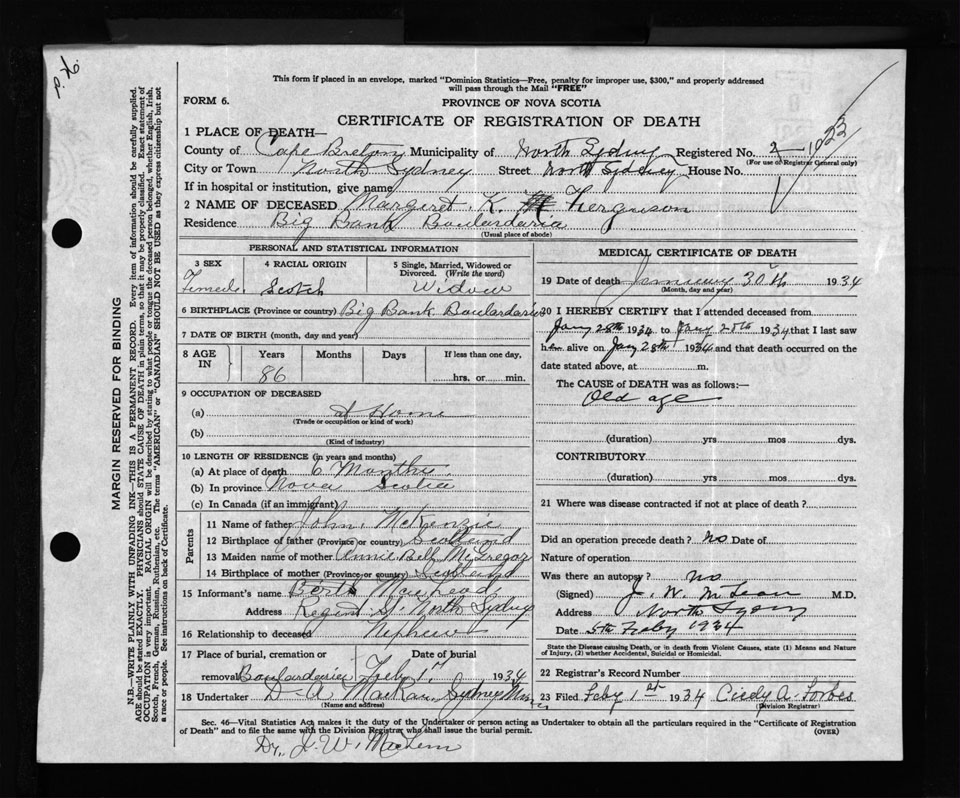 This form if placed in an envelope, marked "Dominion Statistics—Free, penalty for improper use, $300," and properly addressed
will pass through the Mail "FREE"
FORM 6.
PROVINCE OF NOVA SCOTIA
CERTIFICATE OF REGISTRATION OF DEATH
1 PLACE OF DEATH—
County of Cape Breton Municipality of North Sydney Registered No. 1023
(For use of Registrar General only)
City or Town North Sydney Street North Sydney House No.
If in hospital or institution, give name
2 NAME OF DECEASED Margaret K. Ferguson
Residence Big Bank Boulardarie
(Usual place of abode)
PERSONAL AND STATISTICAL INFORMATION
3 SEX 4 RACIAL ORIGIN 5 Single, Married, Widowed or Divorced. (Write the word)
Female Scotch Widow
6 BIRTHPLACE (Province or country) Big Bank Boulardarie
7 DATE OF BIRTH (month, day and year)
8 AGE IN Years Months Days If less than one day,
86 hrs. or min.
9 OCCUPATION OF DECEASED
(a) at Home
(Trade or occupation or kind of work)
(b)
(Kind of industry)
10 LENGTH OF RESIDENCE (in years and months)
(a) At place of death 6 Months
(b) In province Nova Scotia
(c) In Canada (if an immigrant)
Parents
11 Name of father John McKenzie
12 Birthplace of father (Province or country) Scotland
13 Maiden name of mother Annie Bell McGregor
14 Birthplace of mother (Province or country) Scotland
15 Informant's name Bert MacLeod
Address Regent St North Sydney
16 Relationship to deceased Nephew
17 Place of burial, cremation or removal Date of burial
Boulardarie Feby 1st 1934
18 Undertaker D. A. Sydney Mines
(Name and address)
MEDICAL CERTIFICATE OF DEATH
19 Date of death January 30th 1934
(Month, day and year)
20 I HEREBY CERTIFY that I attended deceased from
Jany 28th 1934 to Jany 28th 1934 that I last saw
her alive on Jany 28th 1934 and that death occurred on the
date stated above, at m.
The CAUSE OF DEATH was as follows:—
Old age
(duration) yrs mos dys.
CONTRIBUTORY
(duration) yrs mos dys.
21 Where was disease contracted if not at place of death?
Did an operation precede death? No Date of
Nature of operation
Was there an autopsy? no
(Signed) J. W. McLean M.D.
Address North Sydney
Date 5th Feby 1934
State the Disease causing Death, or in death from Violent Causes, state (1) Means and Nature
of Injury, (2) whether Accidental, Suicidal or Homicidal.
22 Registrar's Record Number
23 Filed Feby 1st 1934 A. Forbes
(Division Registrar)
Sec. 46—Vital Statistics Act makes it the duty of the Undertaker or person acting as Undertaker to obtain all the particulars required in the "Certificate of Registration
of Death" and to file the same with the Division Registrar who shall issue the burial permit.
(OVER)
Dr. J. W.
MARGIN RESERVED FOR BINDING
N.B.—WRITE PLAINLY WITH UNFADING INK—THIS IS A PERMANENT RECORD. Every item of information should be carefully supplied.
AGE should be stated EXACTLY. PHYSICIANS should STATE CAUSE OF DEATH in plain terms, so that it may be properly classified. Exact statement of
OCCUPATION is very important. RACIAL ORIGIN will be described by stating to what people or tongue the deceased person belonged, whether English, Irish,
Scotch, French, German, Russian, Ruthenian, etc. The terms "AMERICAN" or "CANADIAN" SHOULD NOT BE USED as they express citizenship but not
a race or people. See instructions on back of Certificate.